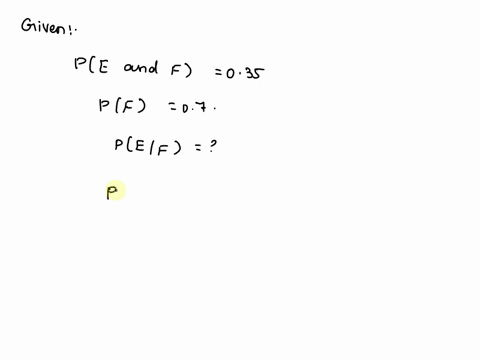 Given!.
P(E and F) = 0.35
P(F) = 0.7.
P(E/F) = ?
P